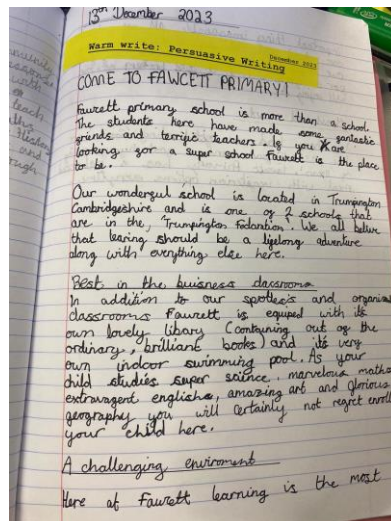 13th December 2023
Warm write: Persuasive Writing
December 2023
COME TO FAWCETT PRIMARY!
Fawcett primary school is more than a school.
The students here have made some fantastic
friends and terrific teachers. If you are
looking for a super school Fawcett is the place
to be.
Our wonderful school is located in Trumpington
Cambridgeshire and is one of 2 schools that
are in the, "Trumpington fedantion". We all believe
that learing should be a lifelong adventure
along with everything else here.
Best in the buisness classrooms
In addition to our spotless and organise
classrooms Fawcett is equiped with its
own lovely libary (containing out of the
ordinary, brilliant books) and it's very
own indoor swimming pool. As your
child studies super science, marvelous maths
extravagent english, amazing art and glorious
geography you will certainly not regret enroll
your child here.
A challenging enviroment
Here at Fawcett learning is the most